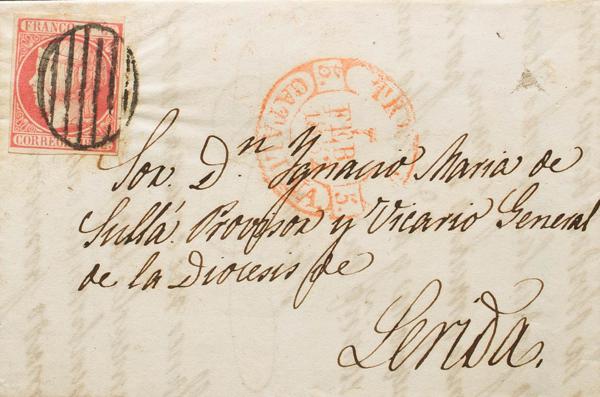 FRANCO
CORREOS
CATALUÑA
FEB
Sor. Dn. Ygnacio Maria de
Sullá. Provisor y Vicario General
de la Diocesis de
Lerida.